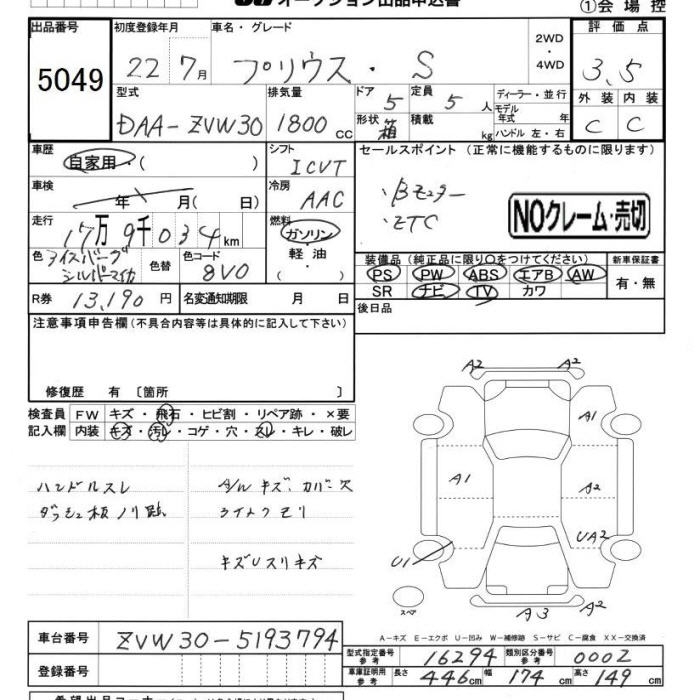 オークション出品申込書
①会場控
出品番号 初度登録年月 車名・グレード 評価点
5049 22 7月 プリウス・S 2WD・4WD 3.5
型式 排気量 ドア 5 定員 5人 ディーラー・並行 外装 内装
DAA-ZVW30 1800cc 形状 箱 積載 kg モデル年式 年 ハンドル 左・右 C C
車歴 自家用・( ) シフト ICVT セールスポイント (正常に機能するものに限ります)
車検 年 月(日) 冷房 AAC ・Bモニター
・ETC
NOクレーム・売切
走行 17万9千034km 燃料 ガソリン・軽油・( )
色 アイスバーグシルバーマイカ 色替 色コード 8V0
装備品(純正品に限り○をつけてください) 新車保証書
PS PW ABS エアB AW 有・無
SR ナビ TV カワ
R券 13,190円 名変通知期限 月 日 後日品
注意事項申告欄(不具合内容等は具体的に記入して下さい)
修復歴 有 〔箇所 〕
検査員 FW キズ・飛石・ヒビ割・リペア跡・×要
記入欄 内装 キズ・汚レ・コゲ・穴・スレ・キレ・破レ
ハンドルスレ A/Wキズ、カバー欠
ダッシュ板ノリ跡 ライトクモリ
キズUスリキズ
A2 A2
A1
A1 A2
UA2
U1
スペア
A3 A2
A-キズ E-エクボ U-凹み W-補修跡 S-サビ C-腐食 XX-交換済
車台番号 ZVW30-5193794
型式指定番号 参考 16294 類別区分番号 参考 0002
登録番号 車庫証明用 参考 長さ 446cm 幅 174cm 高さ 149cm